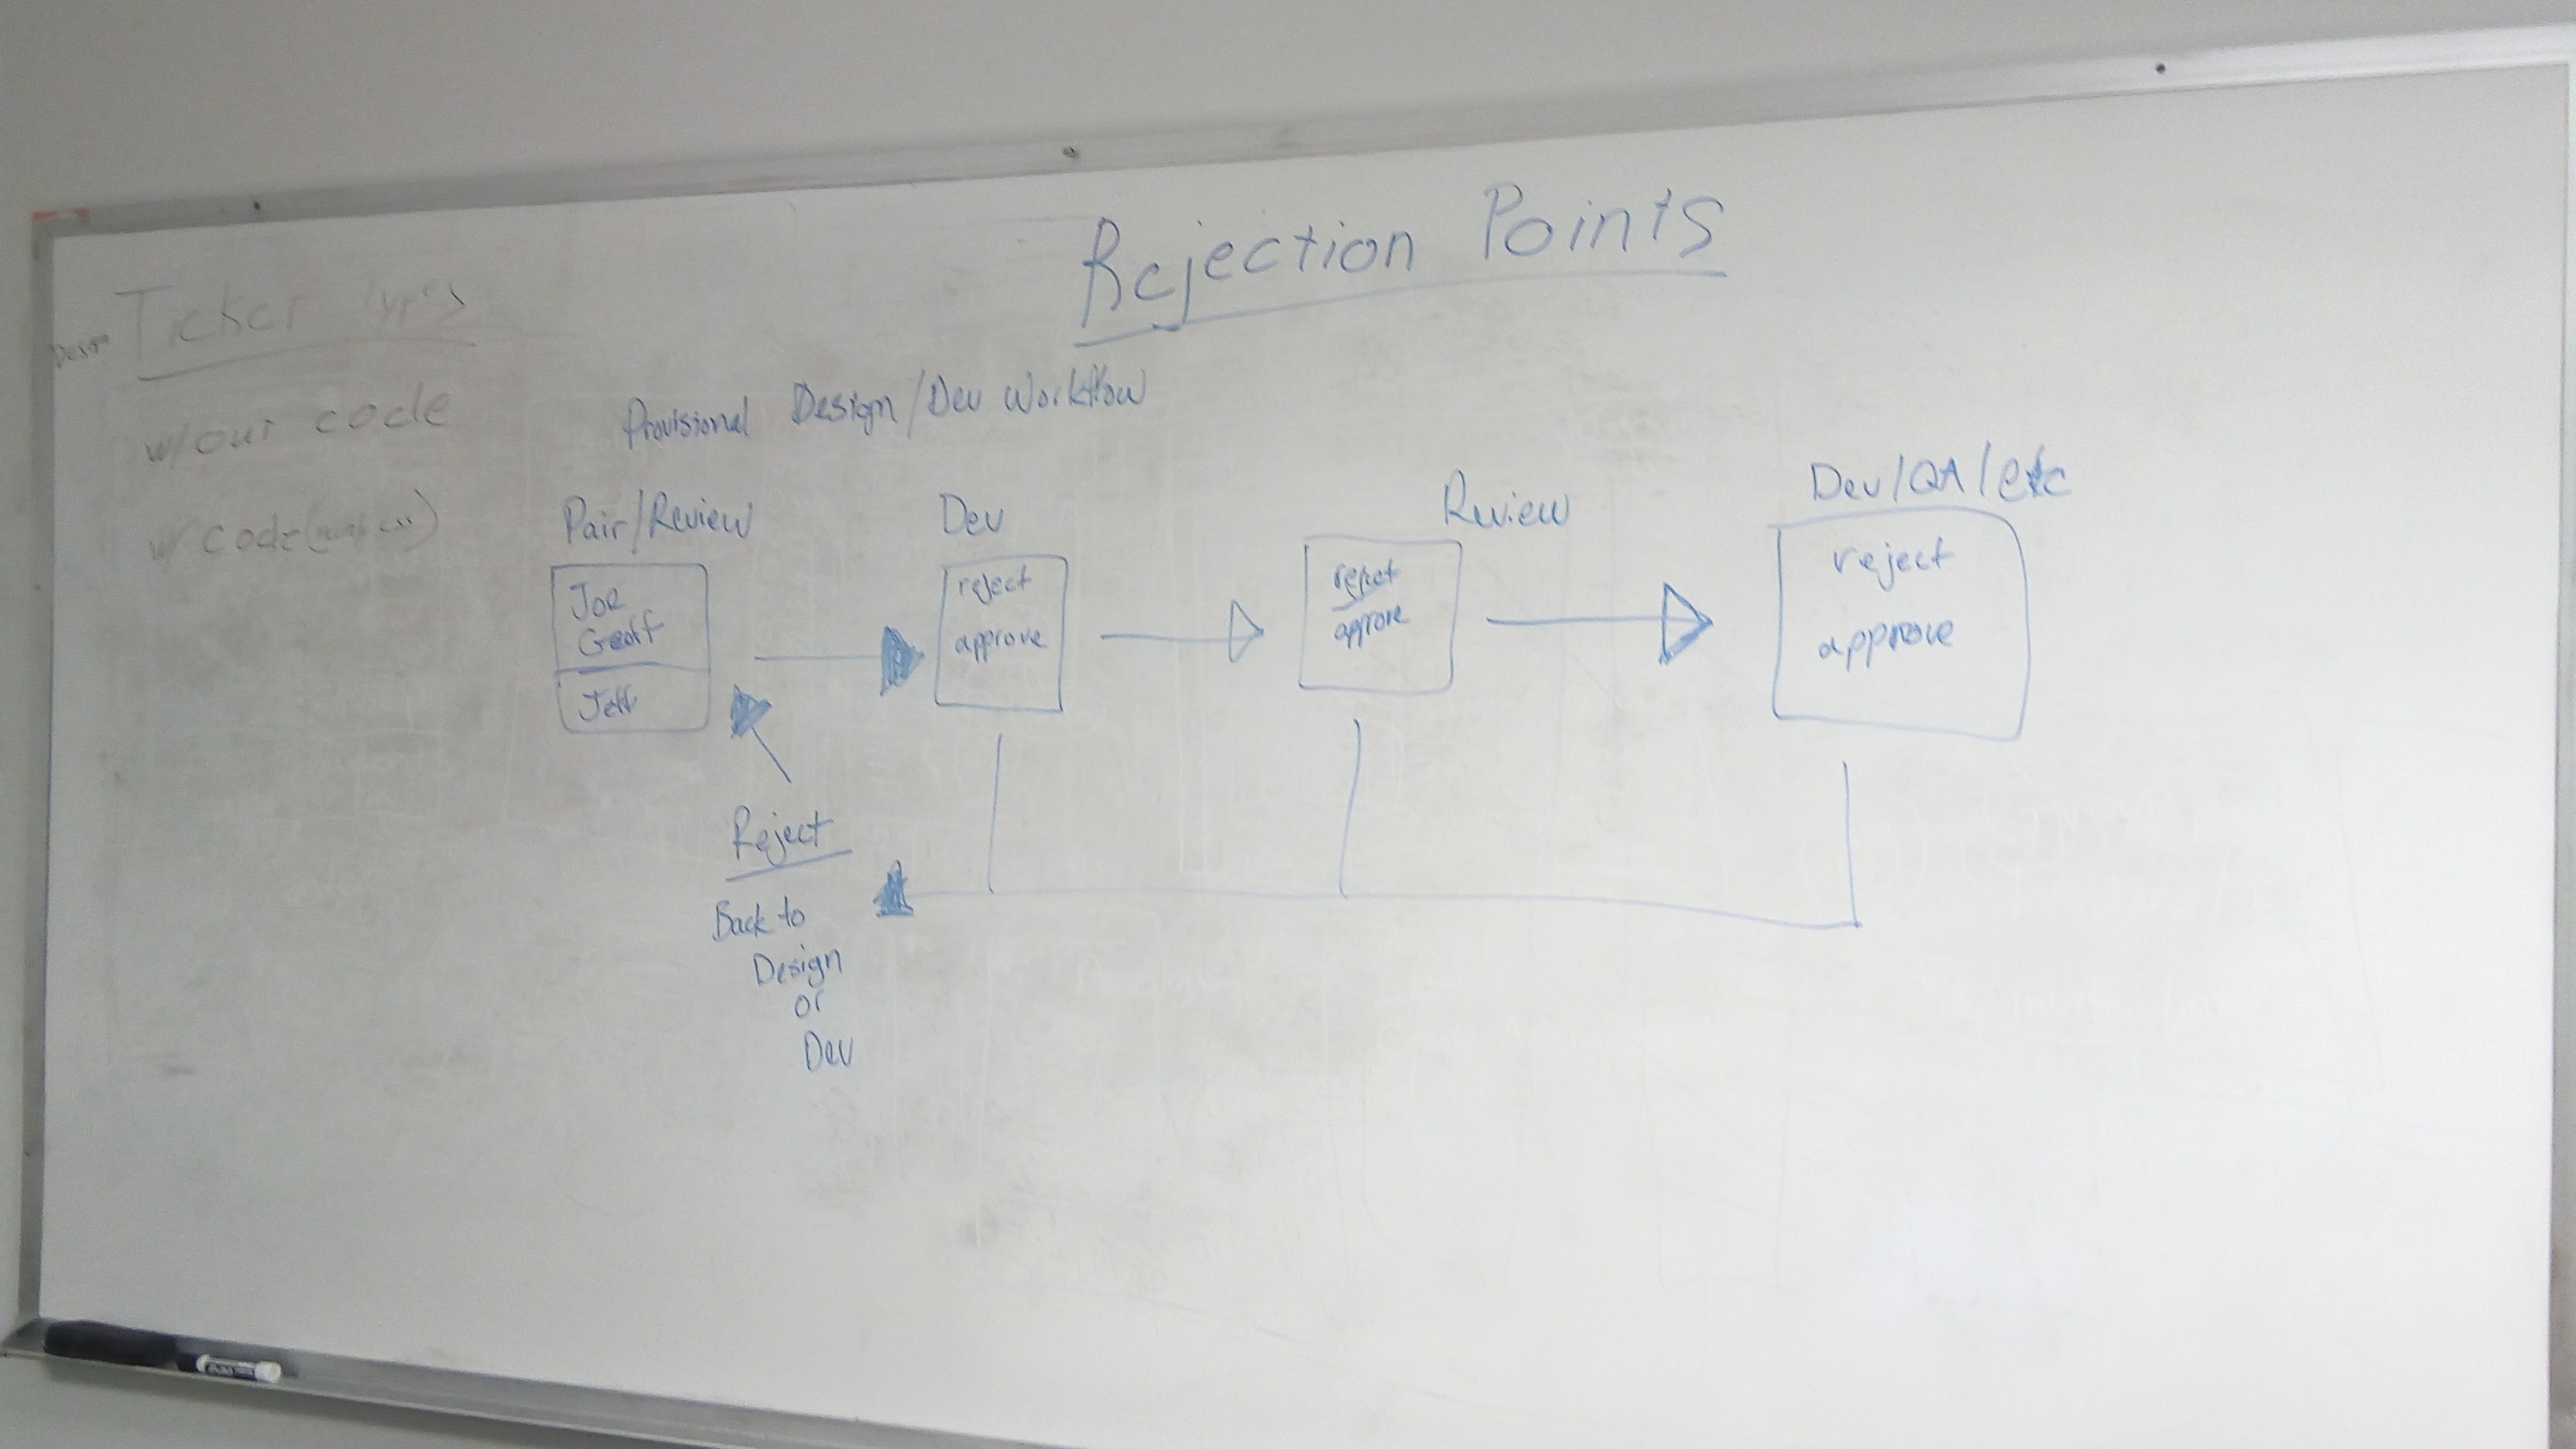 Rejection Points
Design Ticket Types
w/out code
w/ code (
Provisional Design/Dev Workflow
Pair/Review
Joe
Geoff
Jeff
Dev
reject
approve
Review
reject
approve
Dev/QA/etc
reject
approve
Reject
Back to
Design
or
Dev